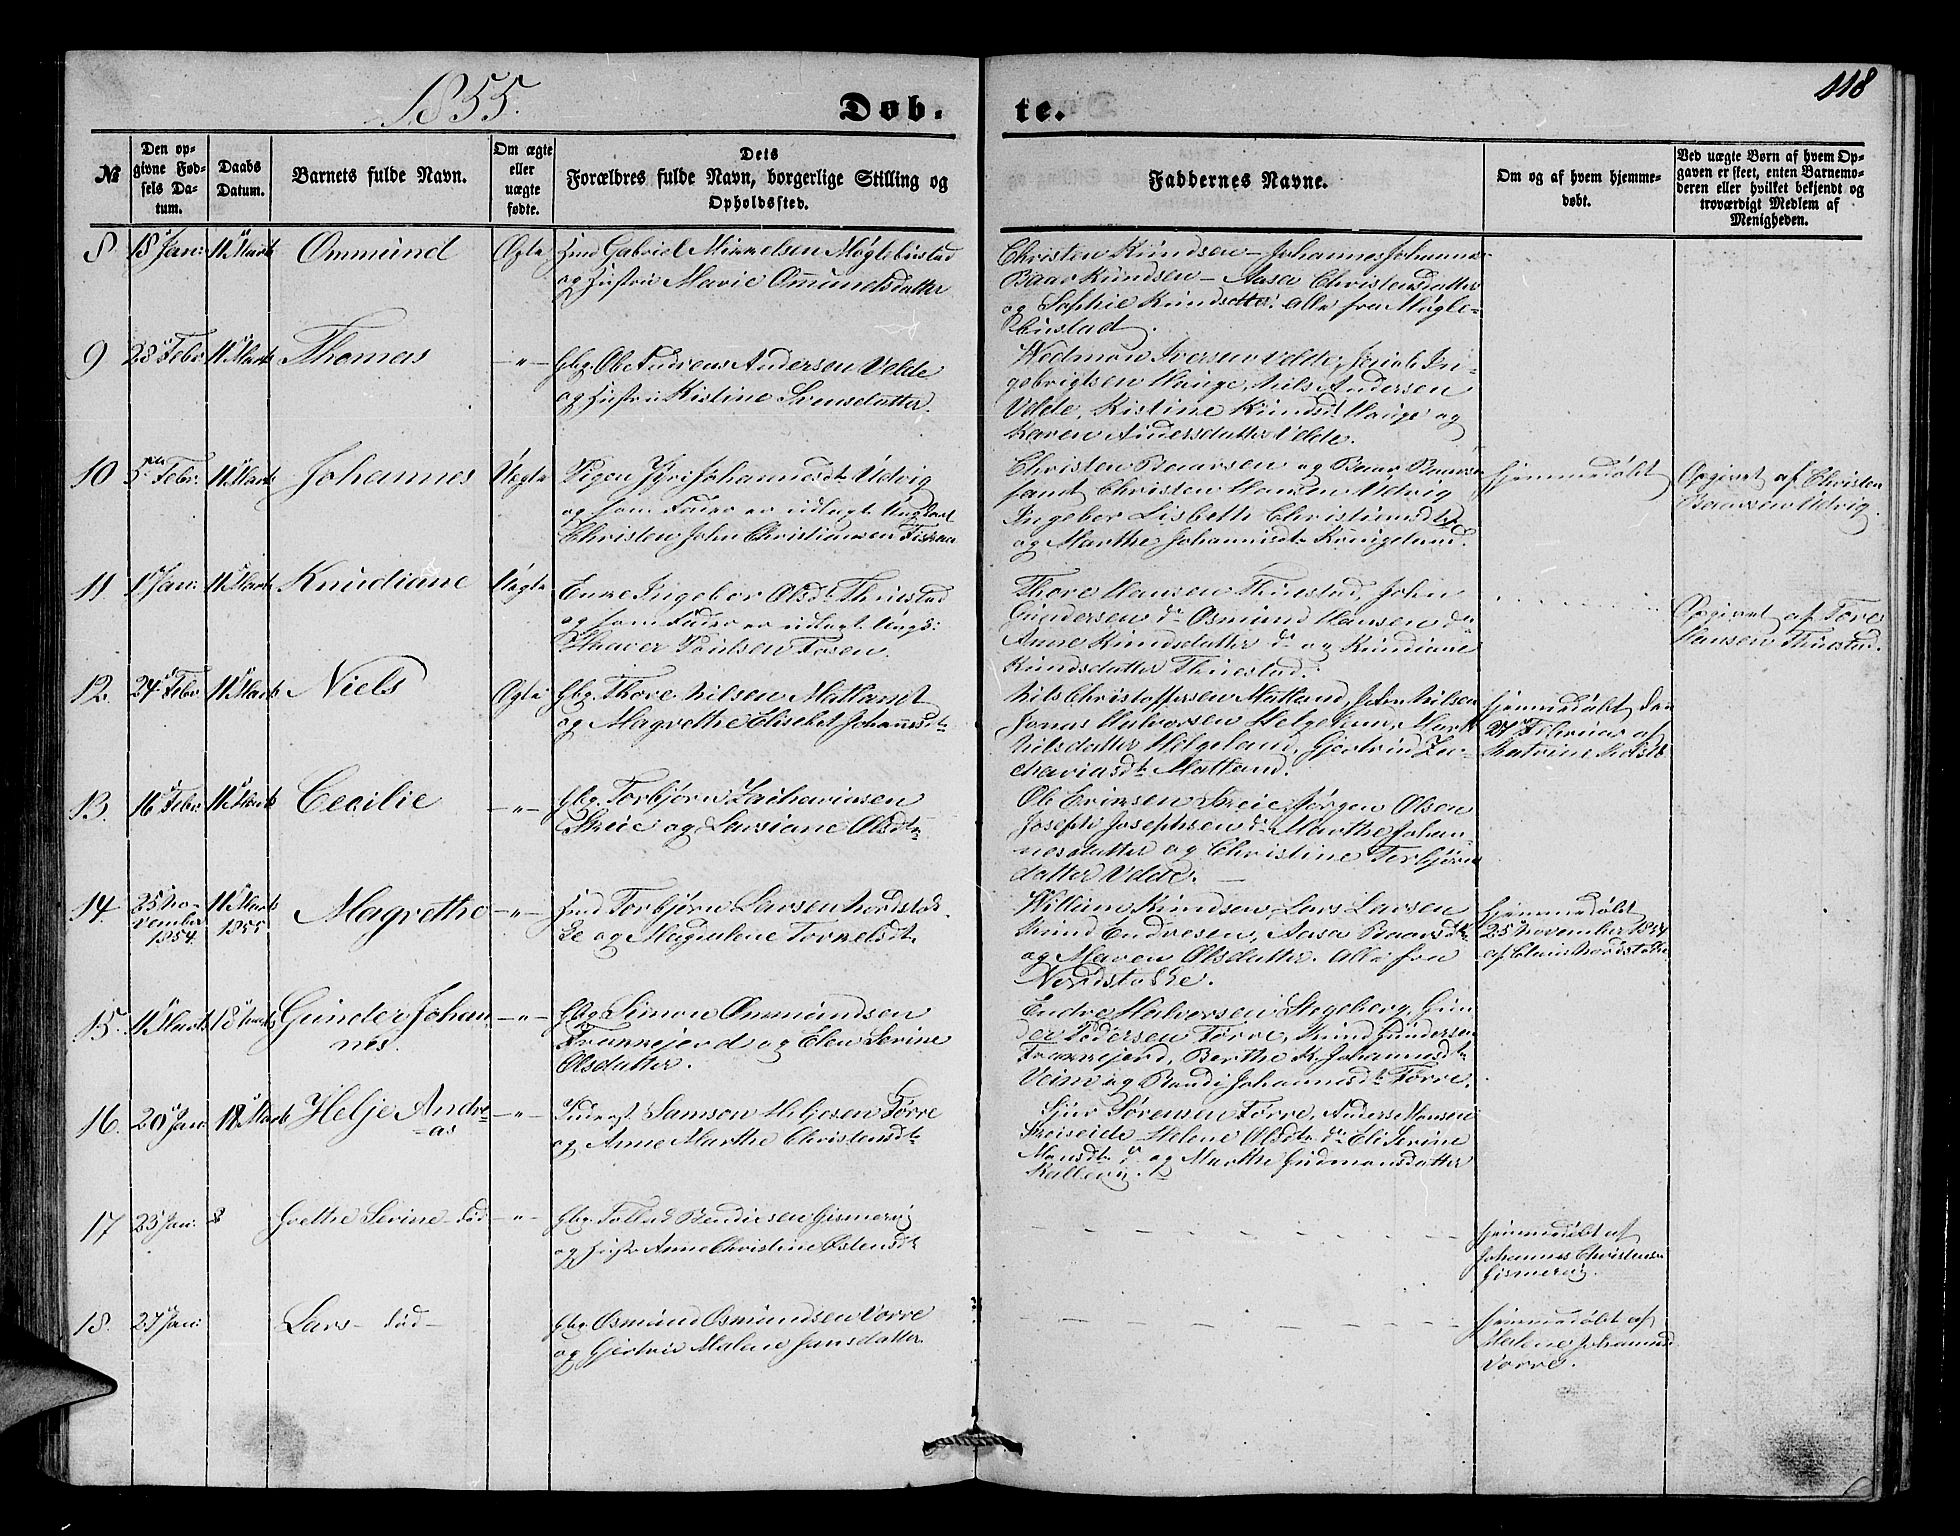 1855.
Døb.
te.
118
№
Den op-
givne Fød-
sels Da-
tum.
Daabs
Datum.
Barnets fulde Navn.
Om ægte
eller
uægte
fødte.
Dets
Forældres fulde Navn, borgerlige Stilling og
Opholdssted.
Faddernes Navne.
Om og af hvem hjemme-
døbt.
Ved uægte Børn af hvem Op-
gaven er skeet, enten Barnemo-
deren eller hvilket bekjendt og
troværdigt Medlem af
Menigheden.
8. 18 Jan: 11 Marts Ommund Ægte Hmd Gabriel Mikkelsen Møglebustad
og Hustru Marie Omundsdatter
Christen Knudsen - Johannes Johannes
Baar Knudsen - Aasa Christensdatter
og Sophie Knudsdtter: Alle fra Møgle-
bustad.
9 28 Febr 11 Marts Thomas -"- Gbg. Ole Andreas Andersen Velde
og Hustru Kistine Svensdatter.
Wedmon Iversen Velde, Jacob In-
gebrigtsen Hauge, Nils Andersen
Velde, Kistine Knudsd. Hauge og
Karen Andersdatter Velde.
10 5te Febr. 11 Marts Johannes Uægte Pigen Johannesdt. Udvig
og som Fader er udlagt Ungkarl
Christen John Christiansen
Christen Baarsen og Baar Baars
samt Christen Hansen Udvig
Ingebor Lisbeth Christiansdtr
og Marthe Johannesdt.
Hjemmedøbt
Opgivet af Christen
Baarsen Udvig.
11 17 Jan: 11 Marts Knudiane Uægte Enke Ingebor Olsdt. Thuestad
og som Fader er udlagt Ungk:
Haaver Poulsen Fosen.
Thore Hansen Thuestad, John
Gundersen do Osmund Hansen do
Anne Knudsdatter do og Knudiane
Knudsdatter Thuestad.
Opgivet af Tore
Hansen Thuestad.
12. 24 Febr 11 Marts Niels Ægte Gbg. Thore Nilsen Matland
og Magrethe Elisabet Johannesdtr
Nils Christoffersen Matland, John Nilsen
Jonas Halvorsen Helgeland, Marthe
Nilsdatter Helgeland, Gjertrud Za-
chariasdt. Matland.
Hjemmedøbt den
27 Februar af
13. 16 Febr 11 Marts Cecilie -"- Gbg. Torbjørn Zachariasen
Skeie og Larsiane Olsdtr.
Ole Eriksen Skeie, Jørgen Olsen
Joseph Josephsen do Marthe Johan-
nesdatter og Christine Torbjørns
datter Velde.
14. 25 No-
vember
1854. 11 Marts
1855 Magrethe -"- Hmd Torbjørn Larsen Nordstok-
ke og Magdalene Torkelsdt.
Willum Knudsen, Lars Larsen
Knud Endresen, Aasa Baarsdt.
og Maren Olsdatter. Alle fra
Nordstokke.
Hjemmedøbt
25 November 1854
af Nordstokke
15. 11 Marts 18 Marts Gunder Johan-
nes. -"- Gbg. Simon Ommundsen
Frakkejerd og Elen Serine
Olsdatter.
Endre Halversen Stegeberg, Gun-
der Pedersen Førre, Knud Gundersen
Frakkejerd, Berthe K. Johannesdt.
Veim og Randi Johannesdt. Førre.
16. 20 Jan 18 Marts Helje Andre-
as -"- Samson Heljesen Førre
og Anne Marthe Christensdt.
Sjur Sørensen Førre, Anders Monsen
Skeiseide Helene Olsdtr. do Eli Serine
Monsdt. do og Marthe Gudmonsdatter
17 25 Jan: Grethe Serine - død -"- Gbg. Tollac Bendicsen Gismervig
og Hustr. Anne Christine Østensdt.
Hjemmedøbt af
Johannes Christensen
Gismervig.
18. 27 Jan: Lars - død - Gbg. Osmund Osmundsen Vorre
og Gjertrud Malene Jansdatter
Hjemmedøbt af
Malene Johannesd
Vorre.